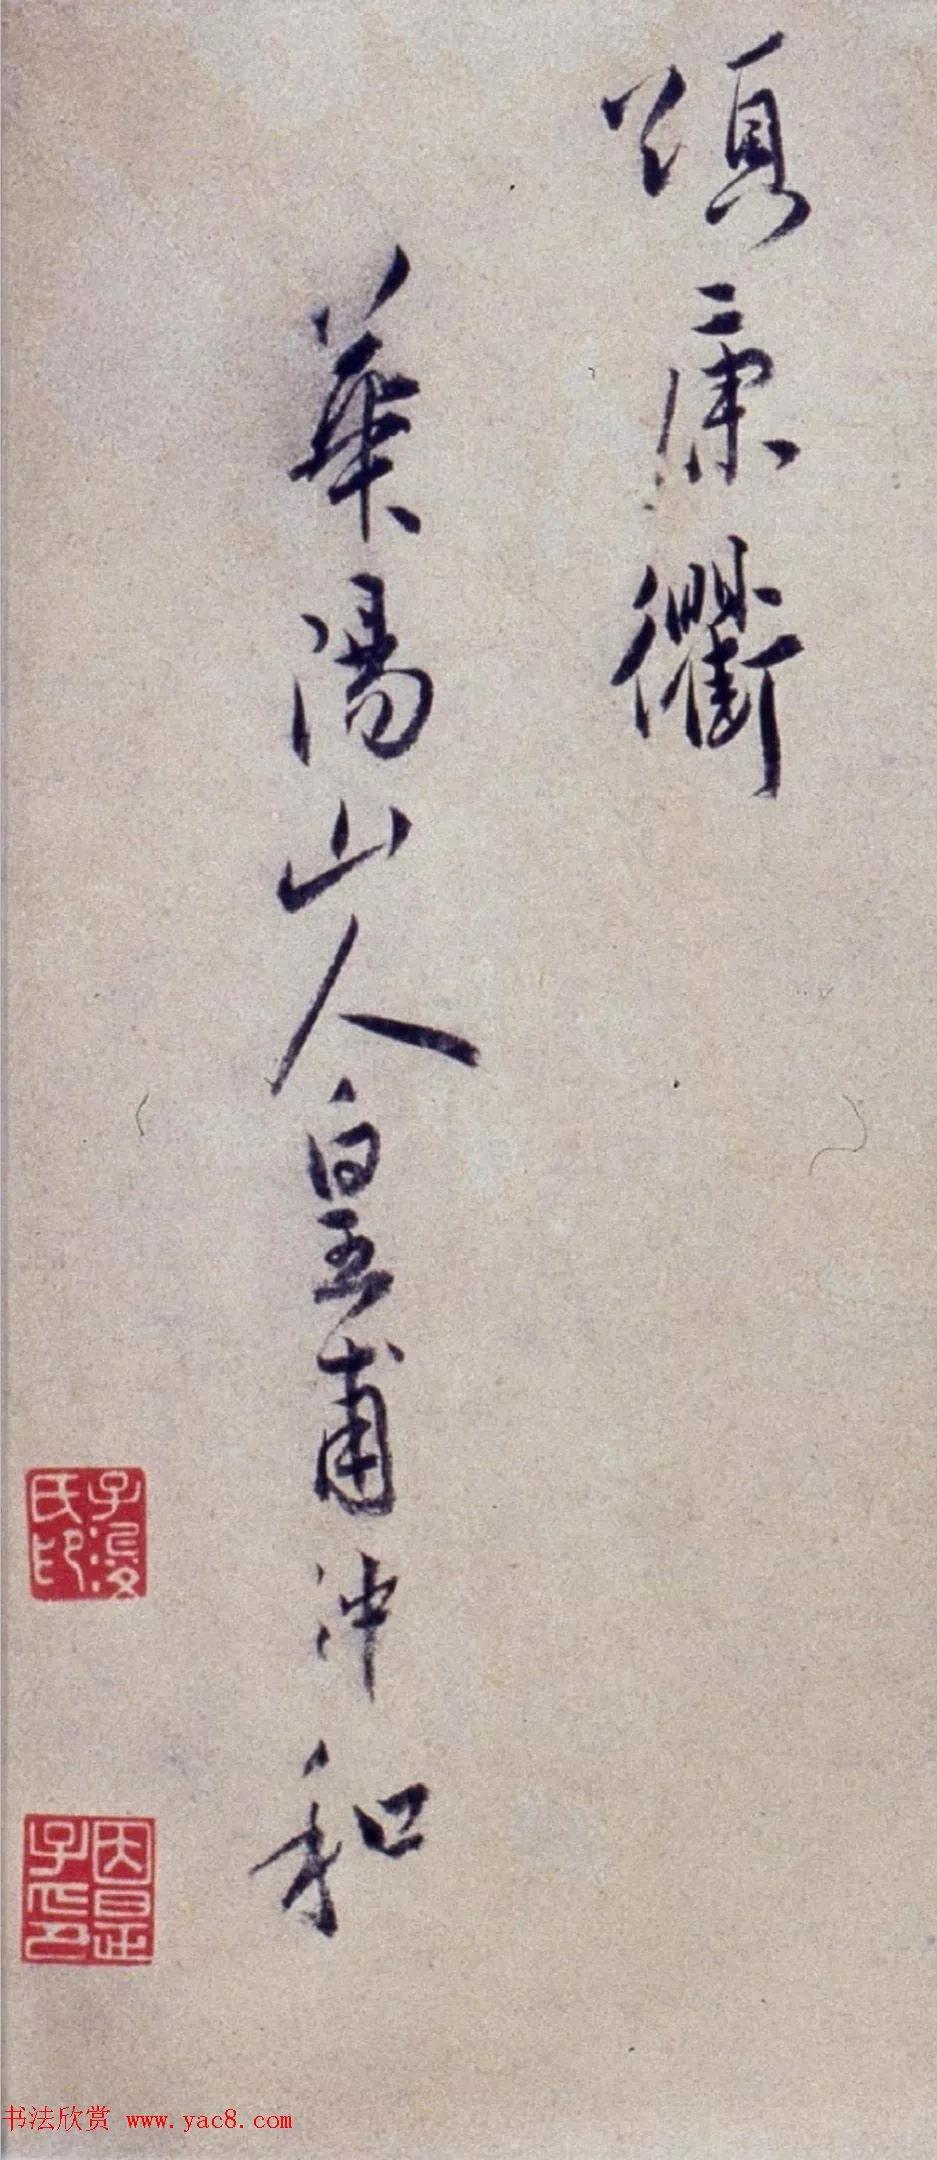 頌康衢
華陽山人皇甫沖和
子浚氏印
因是子印
书法欣赏 www.yac8.com